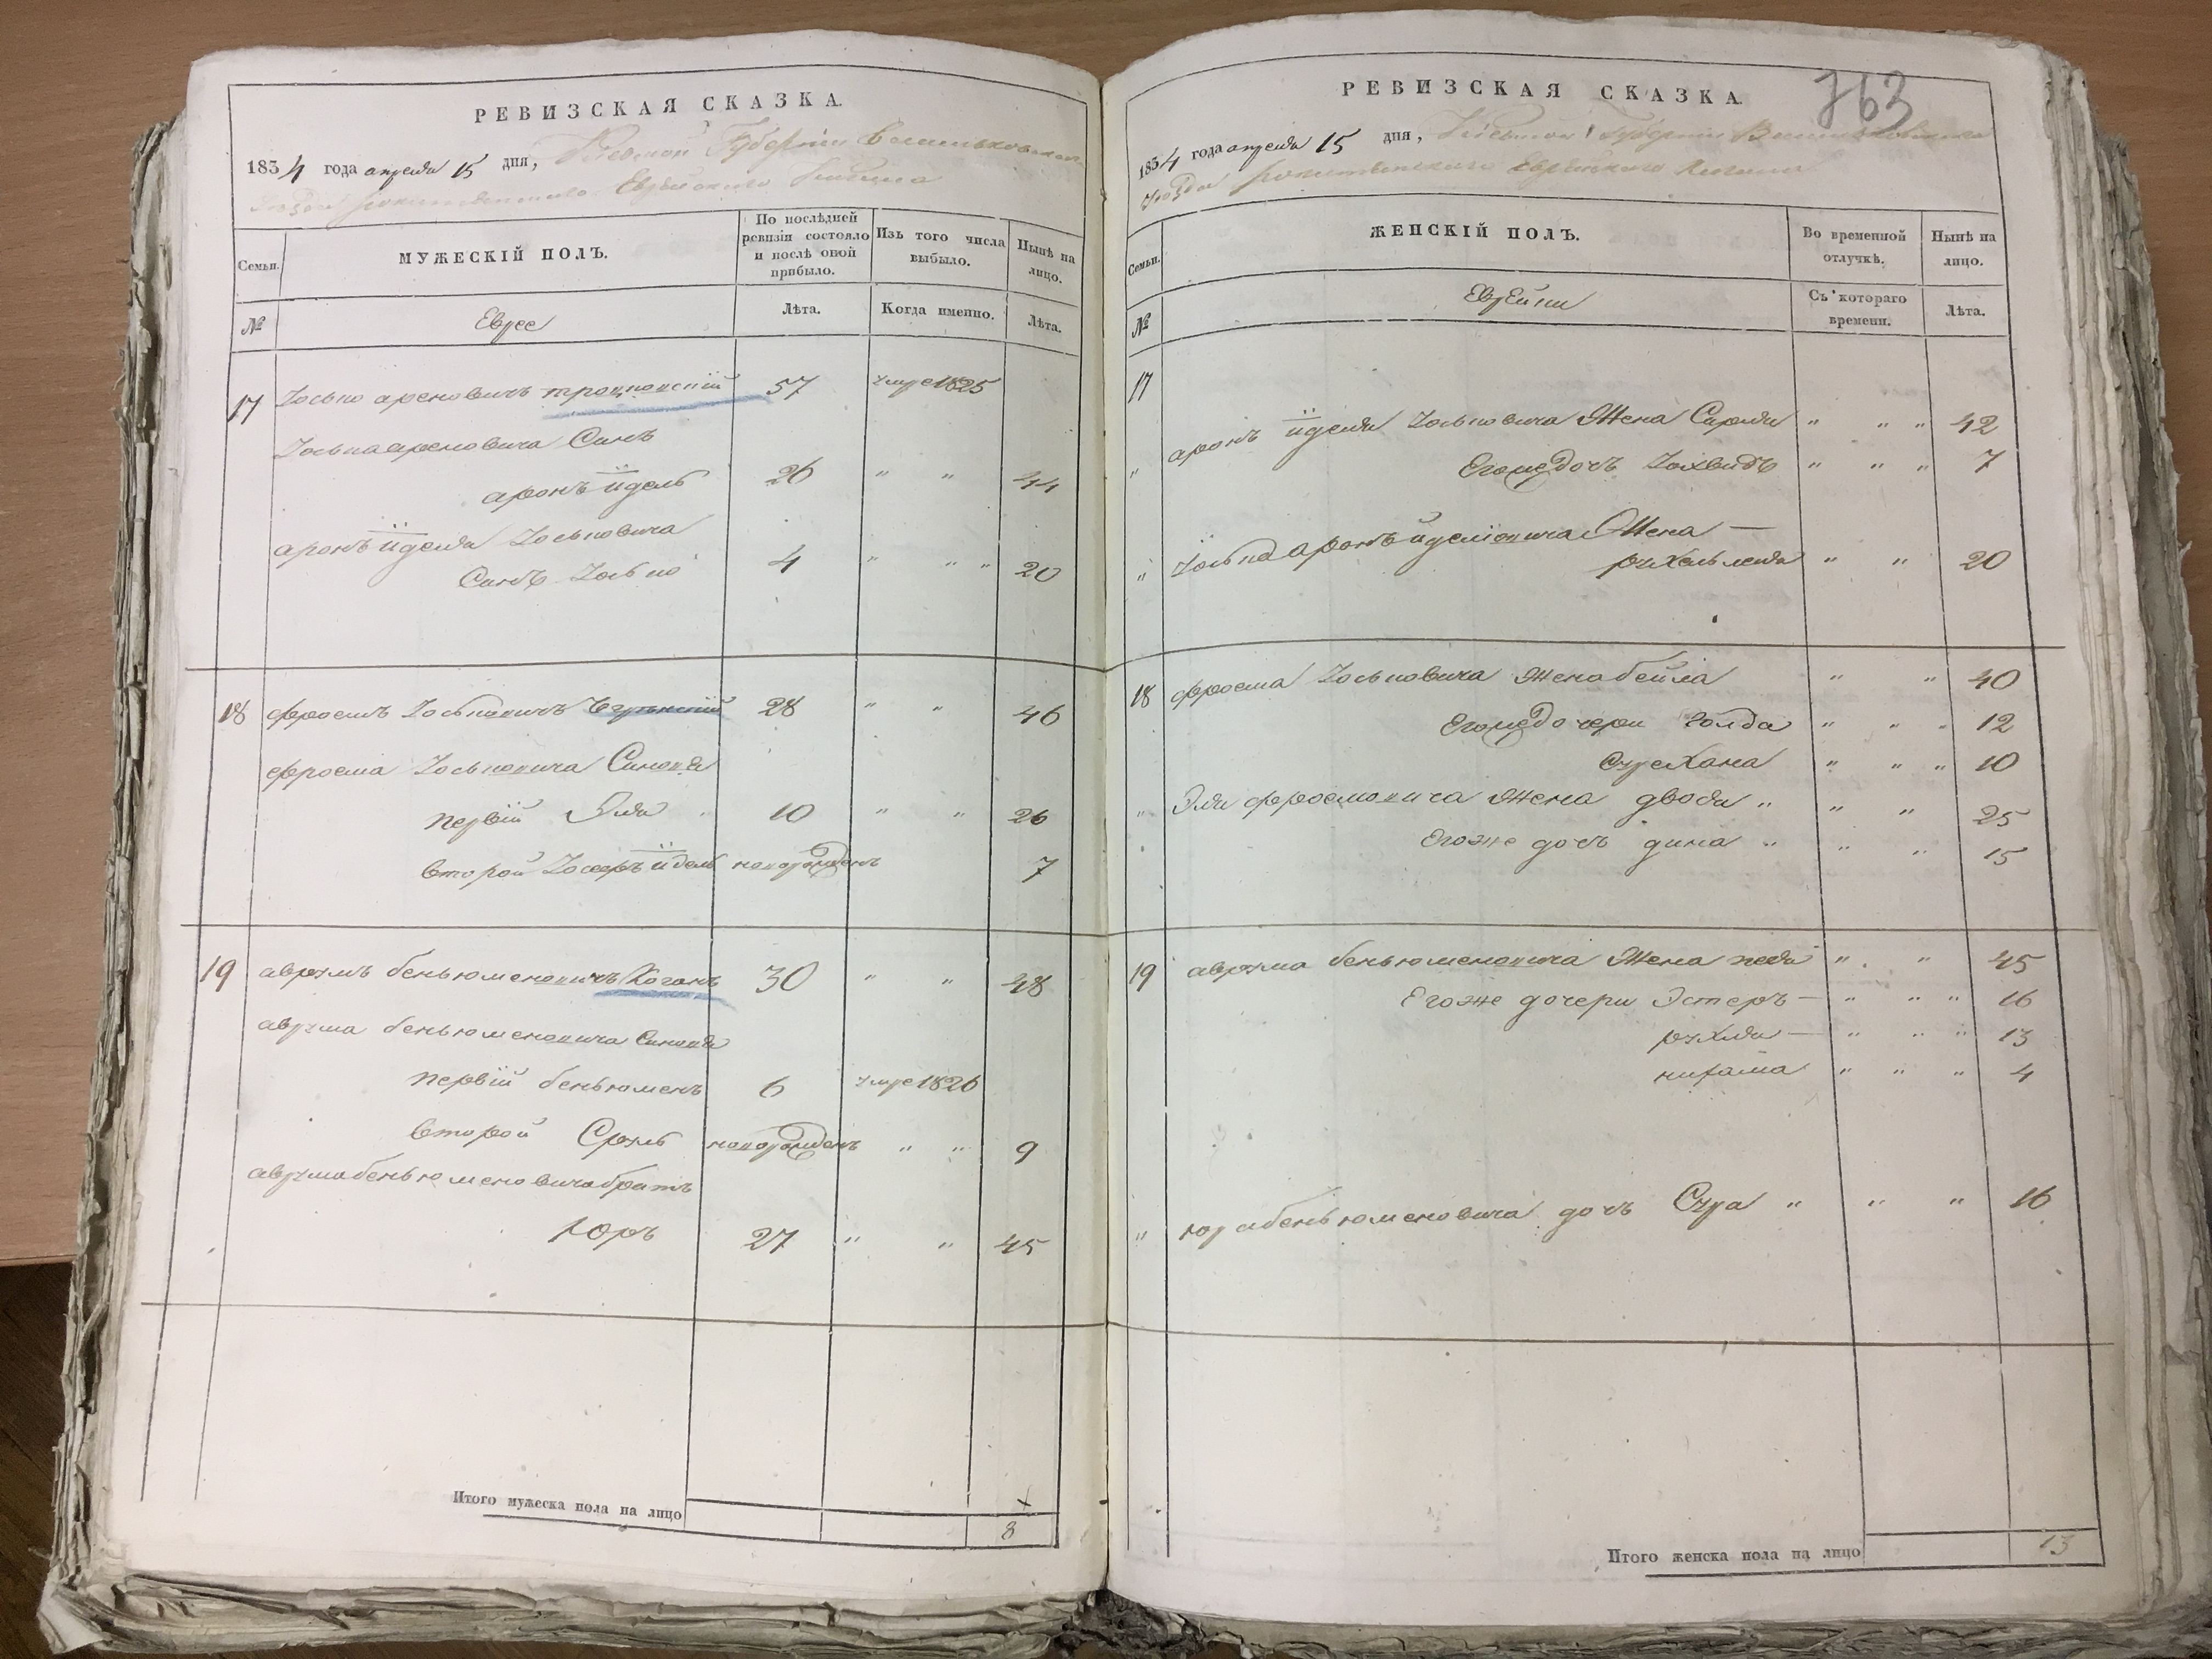 РЕВИЗСКАЯ СКАЗКА.
1834 года апреля 15 дня, Киевской Губернии Васильковского
уезда Еврейского
Семьи.
МУЖЕСКІЙ ПОЛЪ.
По послѣдней ревизіи состояло и послѣ оной прибыло.
Изъ того числа выбыло.
Нынѣ на лицо.
№
Еврее
Лѣта.
Когда именно.
Лѣта.
17 Иосько ароновичъ 57 умре 1825
Иоська ароновича Синъ
аронъ ийдель 26 " " 44
аронъ ийделя Иоськовича
Синъ Иосько 4 " " " 20
18 фроемъ Иоськовичъ 28 " " 46
фроема Иоськовича Синовя
первій Эля 10 " " 26
второй Иосефъ ийдель новорожденъ 7
19 аврумъ беньюменовичъ Коганъ 30 " " 48
аврума беньюменовича Синовя
первій беньюменъ 6 умре 1826
второй Сруль новорожденъ " " 9
аврума беньюменовича братъ
Юръ 27 " " 45
Итого мужеска пола на лицо
8
763
РЕВИЗСКАЯ СКАЗКА.
1834 года апреля 15 дня, Киевской Губернии Васильковского
уезда Еврейского Кагала
Семьи.
ЖЕНСКІЙ ПОЛЪ.
Во временной отлучкѣ.
Нынѣ на лицо.
№
Еврейки
Съ котораго времени.
Лѣта.
17
" аронъ ийделя Иоськовича Жена Сарля " " " 42
Егоже дочъ Иохвидъ " " " 7
" Иоська аронъ ийделіовича Жена —
рухельлея " " 20
18 фроема Иоськовича Жена бейла " " 40
Егоже дочери Голда " " " 12
Суре Хана " " " 10
" Эли фроемовича Жена двойя " " " 25
Егоже дочъ дина " " " 15
19 аврума беньюменовича Жена " " 45
Егоже дочери Эстеръ — " " " 16
рухля — " " " 13
" " " 4
" Юра беньюменовича дочъ Сура " " " 16
Итого женска пола на лицо
13